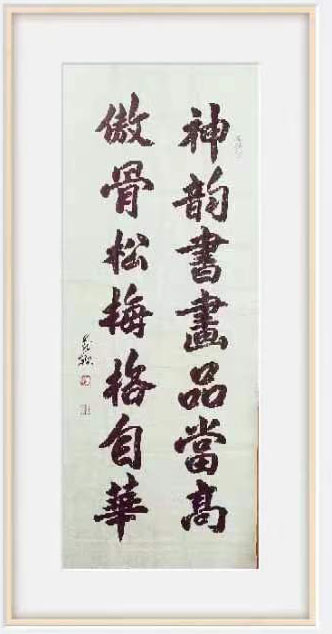 神韵書畫品當高
傲骨松梅格自華